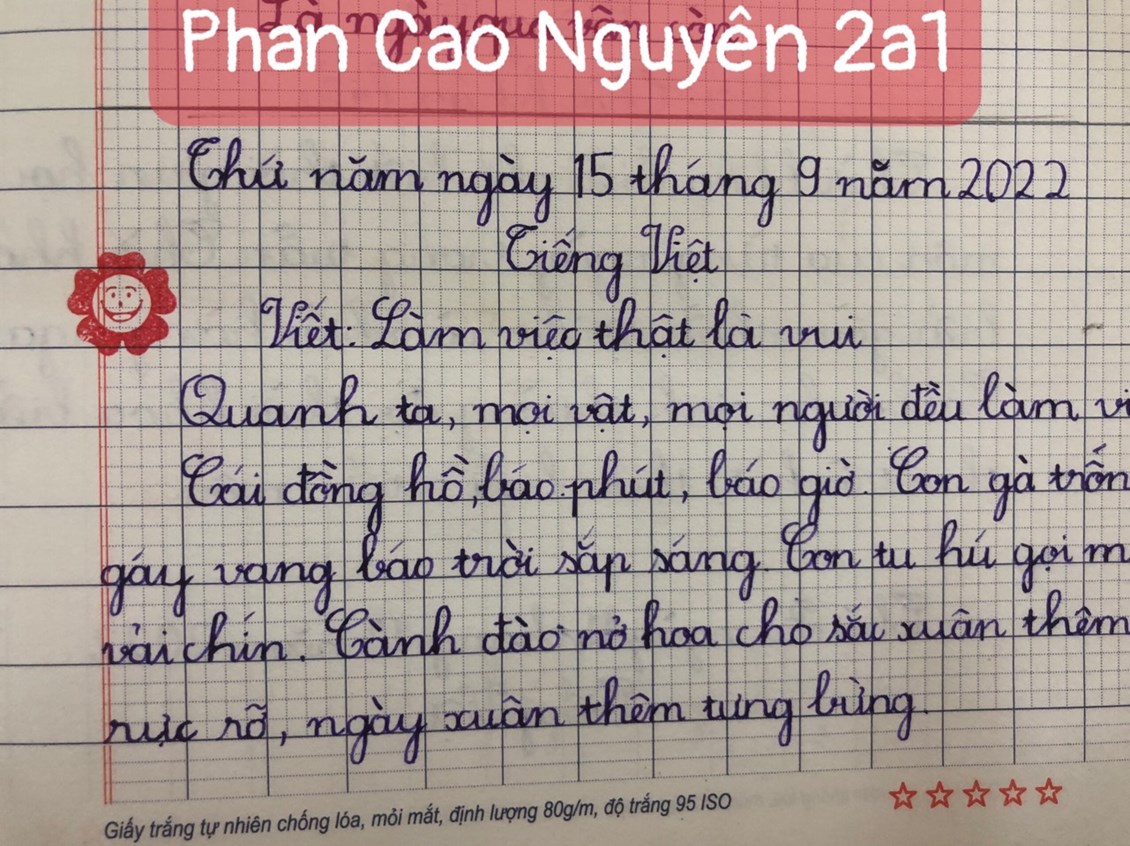 Phan Cao Nguyên 2a1
Thứ năm ngày 15 tháng 9 năm 2022
Tiếng Việt
Viết: Làm việc thật là vui
Quanh ta, mọi vật, mọi người đều làm vi
Cái đồng hồ, báo phút, báo giờ. Con gà trốn
gáy vang báo trời sắp sáng. Con tu hú gọi m
vải chín. Cành đào nở hoa cho sắc xuân thêm
rực rỡ, ngày xuân thêm tưng bừng.
Giấy trắng tự nhiên chống lóa, mỏi mắt, định lượng 80g/m, độ trắng 95 ISO